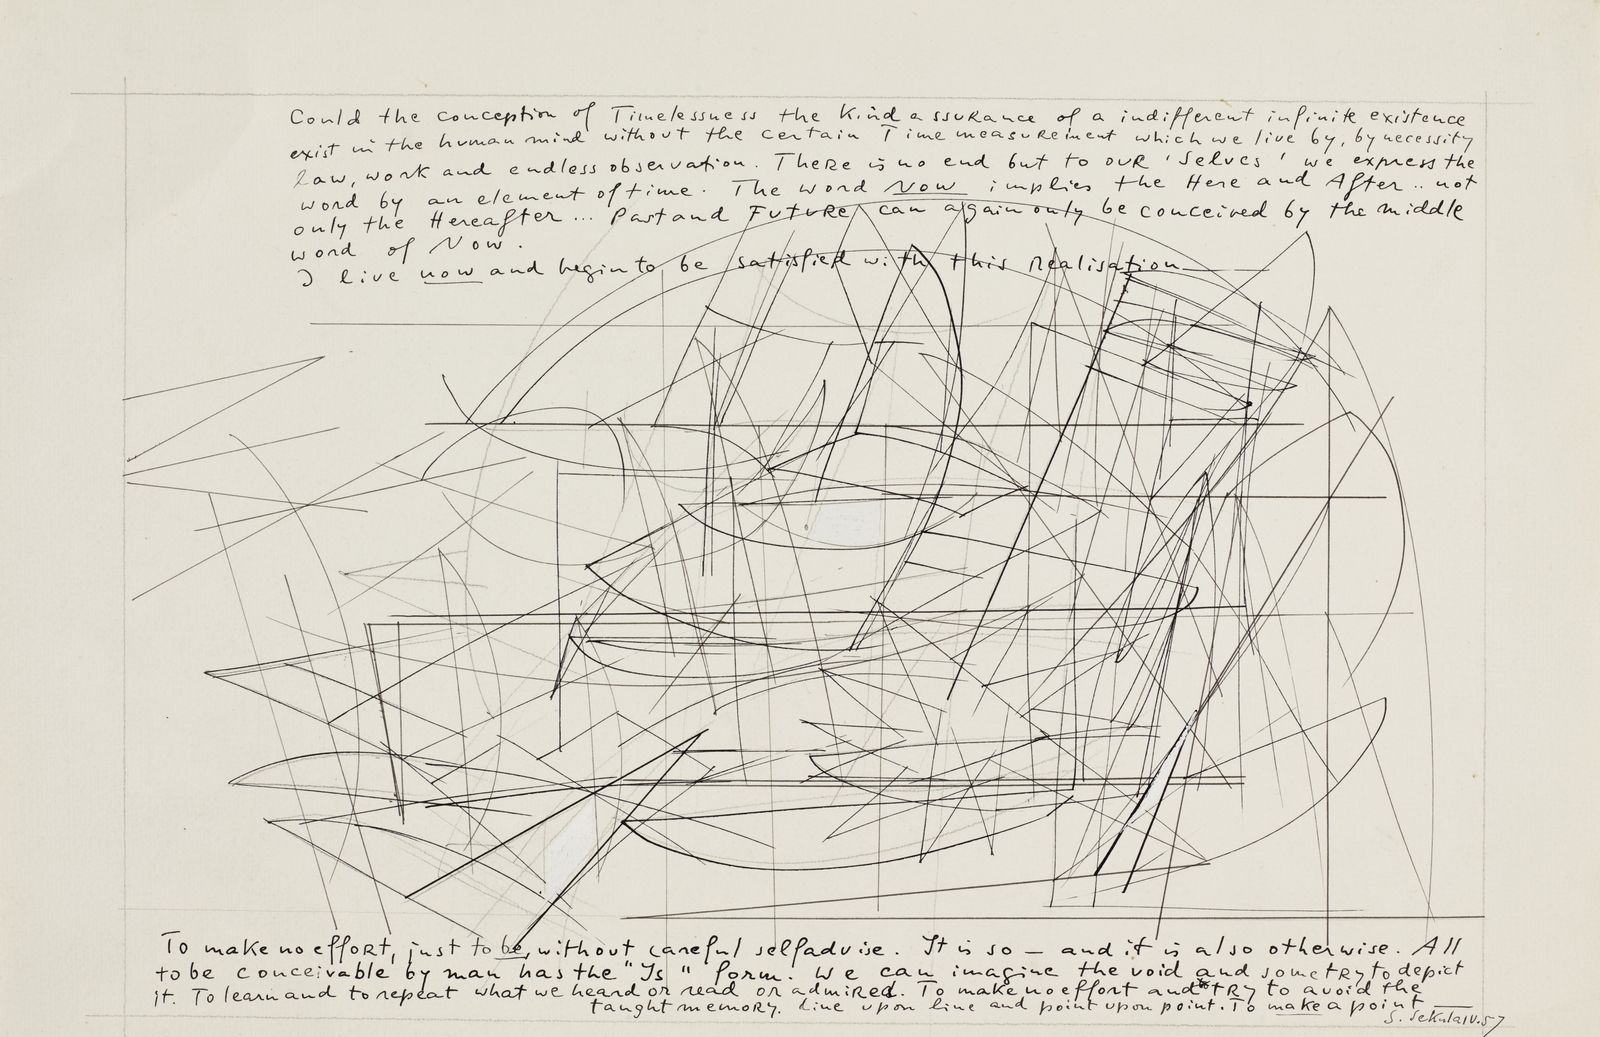 Could the conception of Timelessness the Kind assurance of a indifferent infinite existence
exist in the human mind without the certain Time measurement which we live by, by necessity
law, work and endless observation. There is no end but to our 'selves' we express the
word by an element of time. The word Now implies the Here and After.. not
only the Hereafter... Past and Future can again only be conceived by the middle
word of Now.
I live now and begin to be satisfied with this Realisation
To make no effort, just to be, without careful selfadvise. It is so — and it is also otherwise. All
to be conceivable by man has the "Is" form. We can imagine the void and some try to depict
it. To learn and to repeat what we heard or read or admired. To make no effort and try to avoid the
taught memory. Line upon line and point upon point. To make a point
S. Sekula IV.57